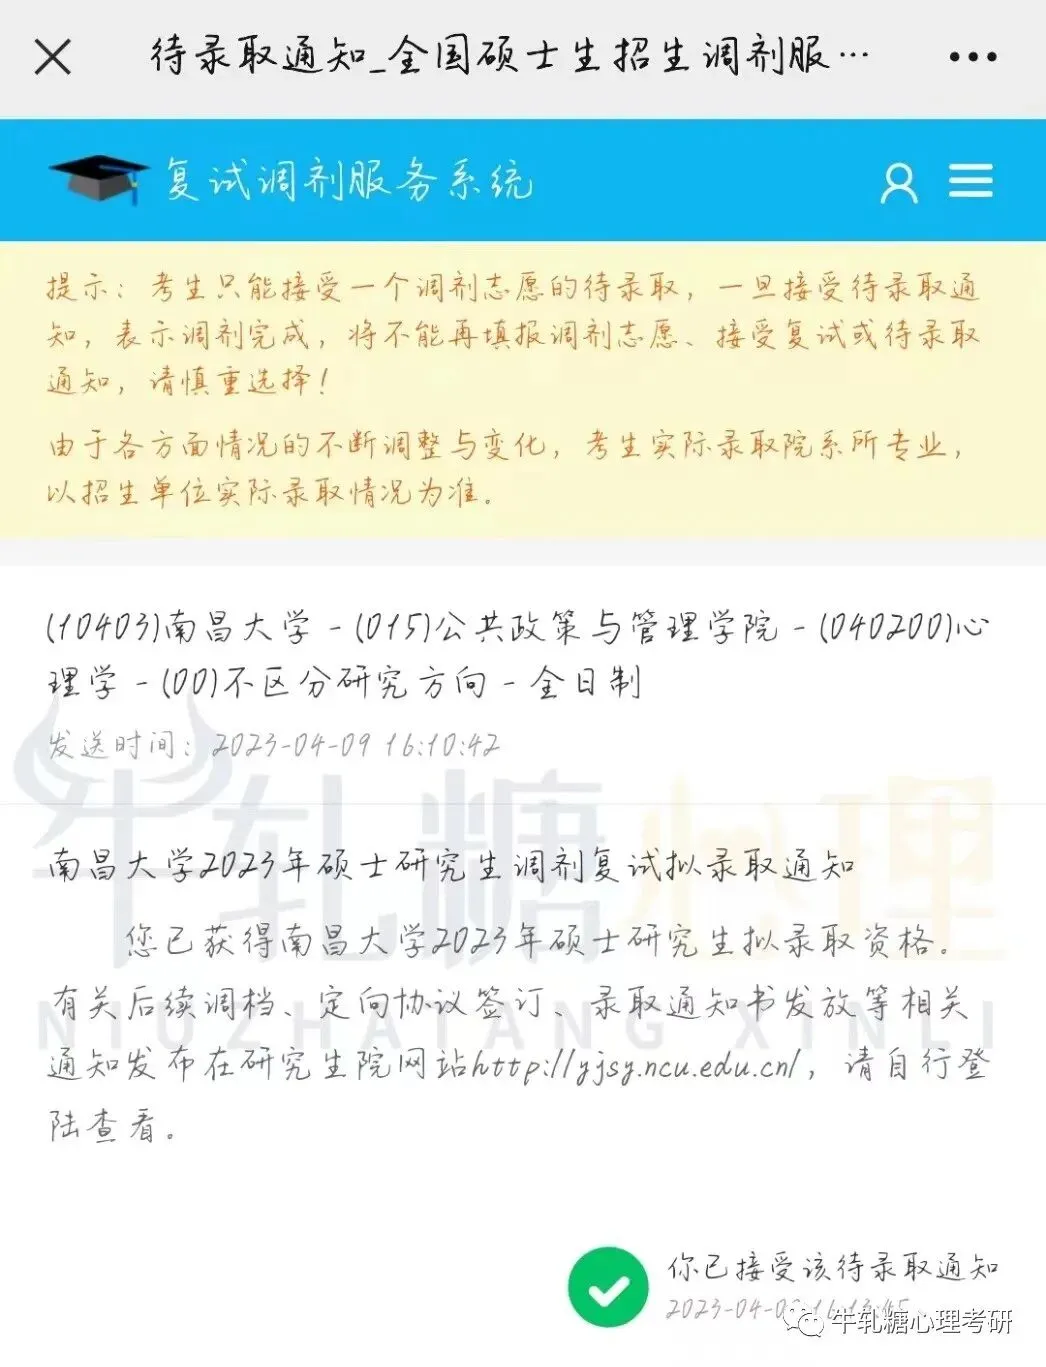 待录取通知_全国硕士生招生调剂服…
复试调剂服务系统
提示：考生只能接受一个调剂志愿的待录取，一旦接受待录取通
知，表示调剂完成，将不能再填报调剂志愿、接受复试或待录取
通知，请慎重选择！
由于各方面情况的不断调整与变化，考生实际录取院系所专业，
以招生单位实际录取情况为准。
(10403)南昌大学-(015)公共政策与管理学院-(040200)心
理学-(00)不区分研究方向-全日制
发送时间：2023-04-09 16:10:42
牛轧糖心理
南昌大学2023年硕士研究生调剂复试拟录取通知
您已获得南昌大学2023年硕士研究生拟录取资格。
有关后续调档、定向协议签订、录取通知书发放等相关
NIUZHATANG XINLI
通知发布在研究生院网站http://yjsy.ncu.edu.cn/，请自行登
陆查看。
你已接受该待录取通知
2023-04-09 16:13:45
牛轧糖心理考研